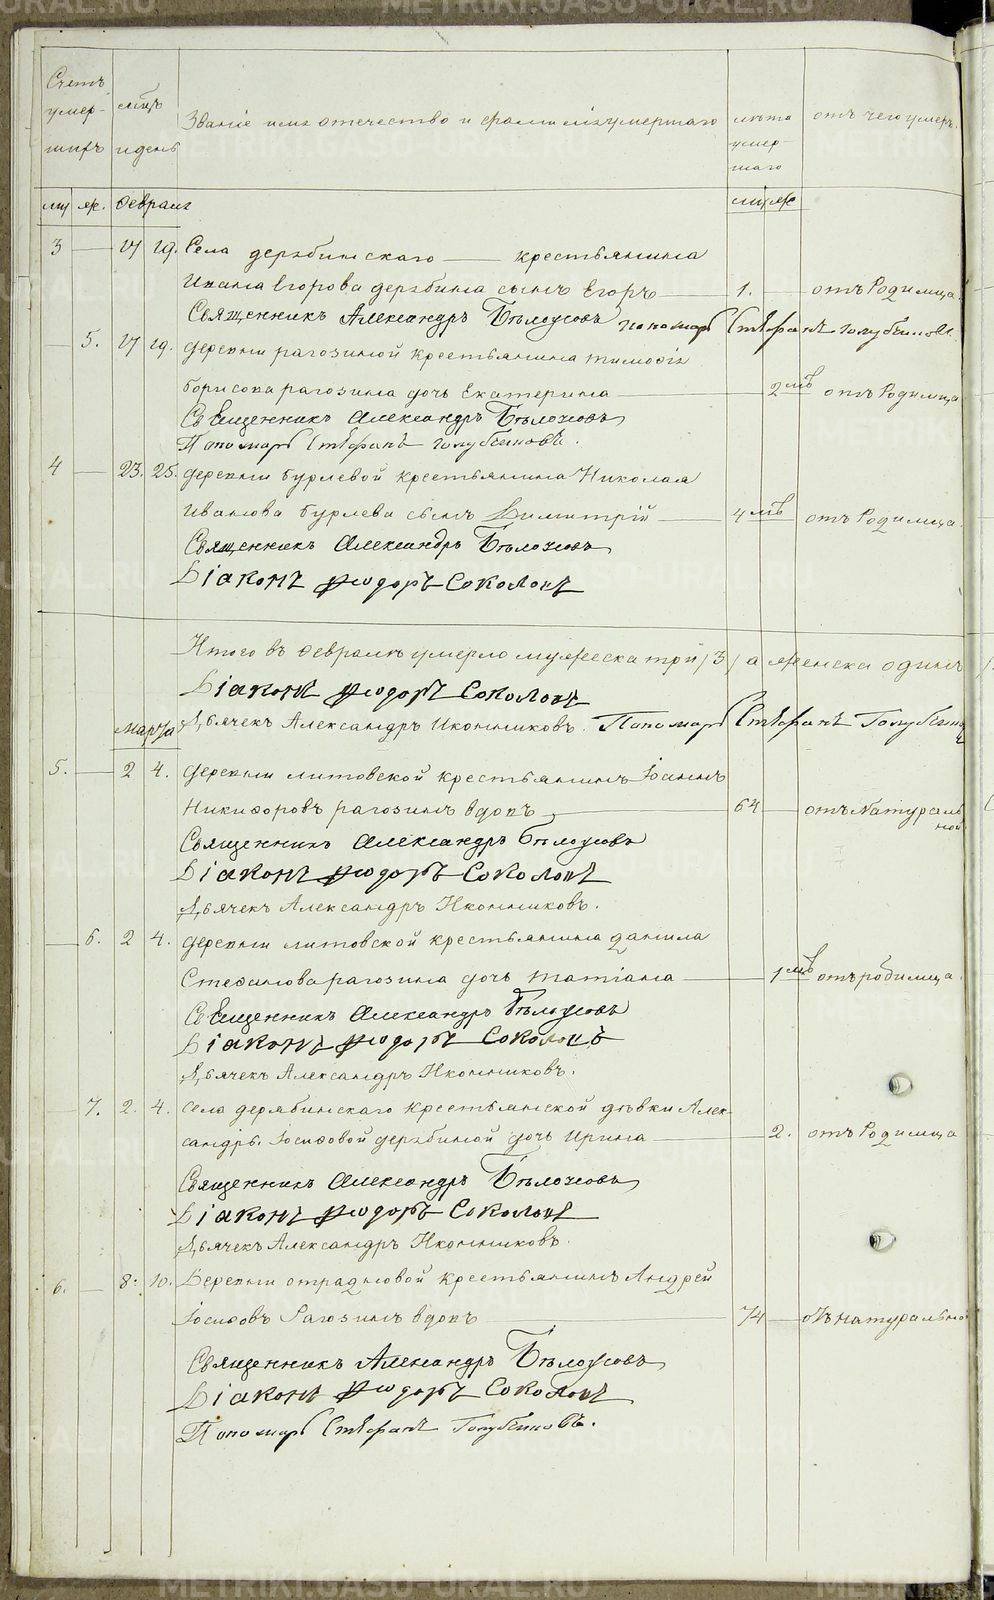 METRIKI.GASO-URAL.RU
Счетъ умер- шихъ
мцъ и день
Званіе имя отечество и фамилія умершаго
лѣта умер- шаго
отъ чего умеръ.
м ж. Февраля м ж
3 — 17 19. Села дерябинскаго — крестьянина
Ивана Егорова дерябина сынъ Егоръ — 1. — отъ Родимца.
Священникъ Александръ Бѣлоусовъ пономарь Стефанъ Голубчиковъ
— 5. 17 19. деревни рагозиной крестьянина тимофія
борисова рагозина дочь Екатерина — 2 мцъ отъ Родимца
Священникъ Александръ Бѣлоусовъ
Пономарь Стефанъ
4 — 23. 25. деревни бурлевой крестьянина Николая
Иванова бурлева сынъ Димитрій — 4 мцъ — отъ Родимца.
Священникъ Александръ Бѣлоусовъ
Діаконъ Ѳеодоръ Соколовъ
Итого въ Февралѣ умерло мужеска три /3/ а женска одинъ
Діаконъ Ѳеодоръ Соколовъ
Дьячекъ Александръ Иконниковъ. Пономарь Стефанъ
Марта
5. — 2 4. деревни литовской крестьянинъ Іоаннъ
Никифоровъ рагозинъ вдовъ — 64 — отъ Натураль
ной
Священникъ Александръ Бѣлоусовъ
Діаконъ Ѳеодоръ Соколовъ
Дьячекъ Александръ Иконниковъ.
— 6. 2 4. деревни литовской крестьянина данила
Стефанова рагозина дочь татіана — 1 мцъ отъ родимца.
Священникъ Александръ Бѣлоусовъ
Діаконъ Ѳеодоръ Соколовъ
Дьячекъ Александръ Иконниковъ.
7. 2. 4. села дерябинскаго крестьянской дѣвки Алек-
сандры Іосифовой дерябиной дочь Ирина — 2. отъ Родимца
Священникъ Александръ Бѣлоусовъ
Діаконъ Ѳеодоръ Соколовъ
Дьячекъ Александръ Иконниковъ.
6. — 8. 10. Деревни отрадновой крестьянинъ Андрей
Іосифовъ Рагозинъ вдовъ — 74 — отъ натуральной
Священникъ Александръ Бѣлоусовъ
Діаконъ Ѳеодоръ Соколовъ
Пономарь Стефанъ
METRIKI.GASO-URAL.RU